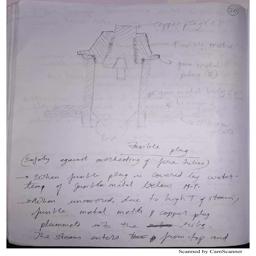 copper plug (
fusible metal
gun metal
plug (
gun metal body
fusible plug
(Safety against overheating of fire tubes)
→ When fusible plug is covered by water
temp of fusible metal below M.P.
→ When uncovered, due to high T of steam,
fusible metal melts & copper plug
plummets into the tube
The steam enters from and
Scanned by CamScanner